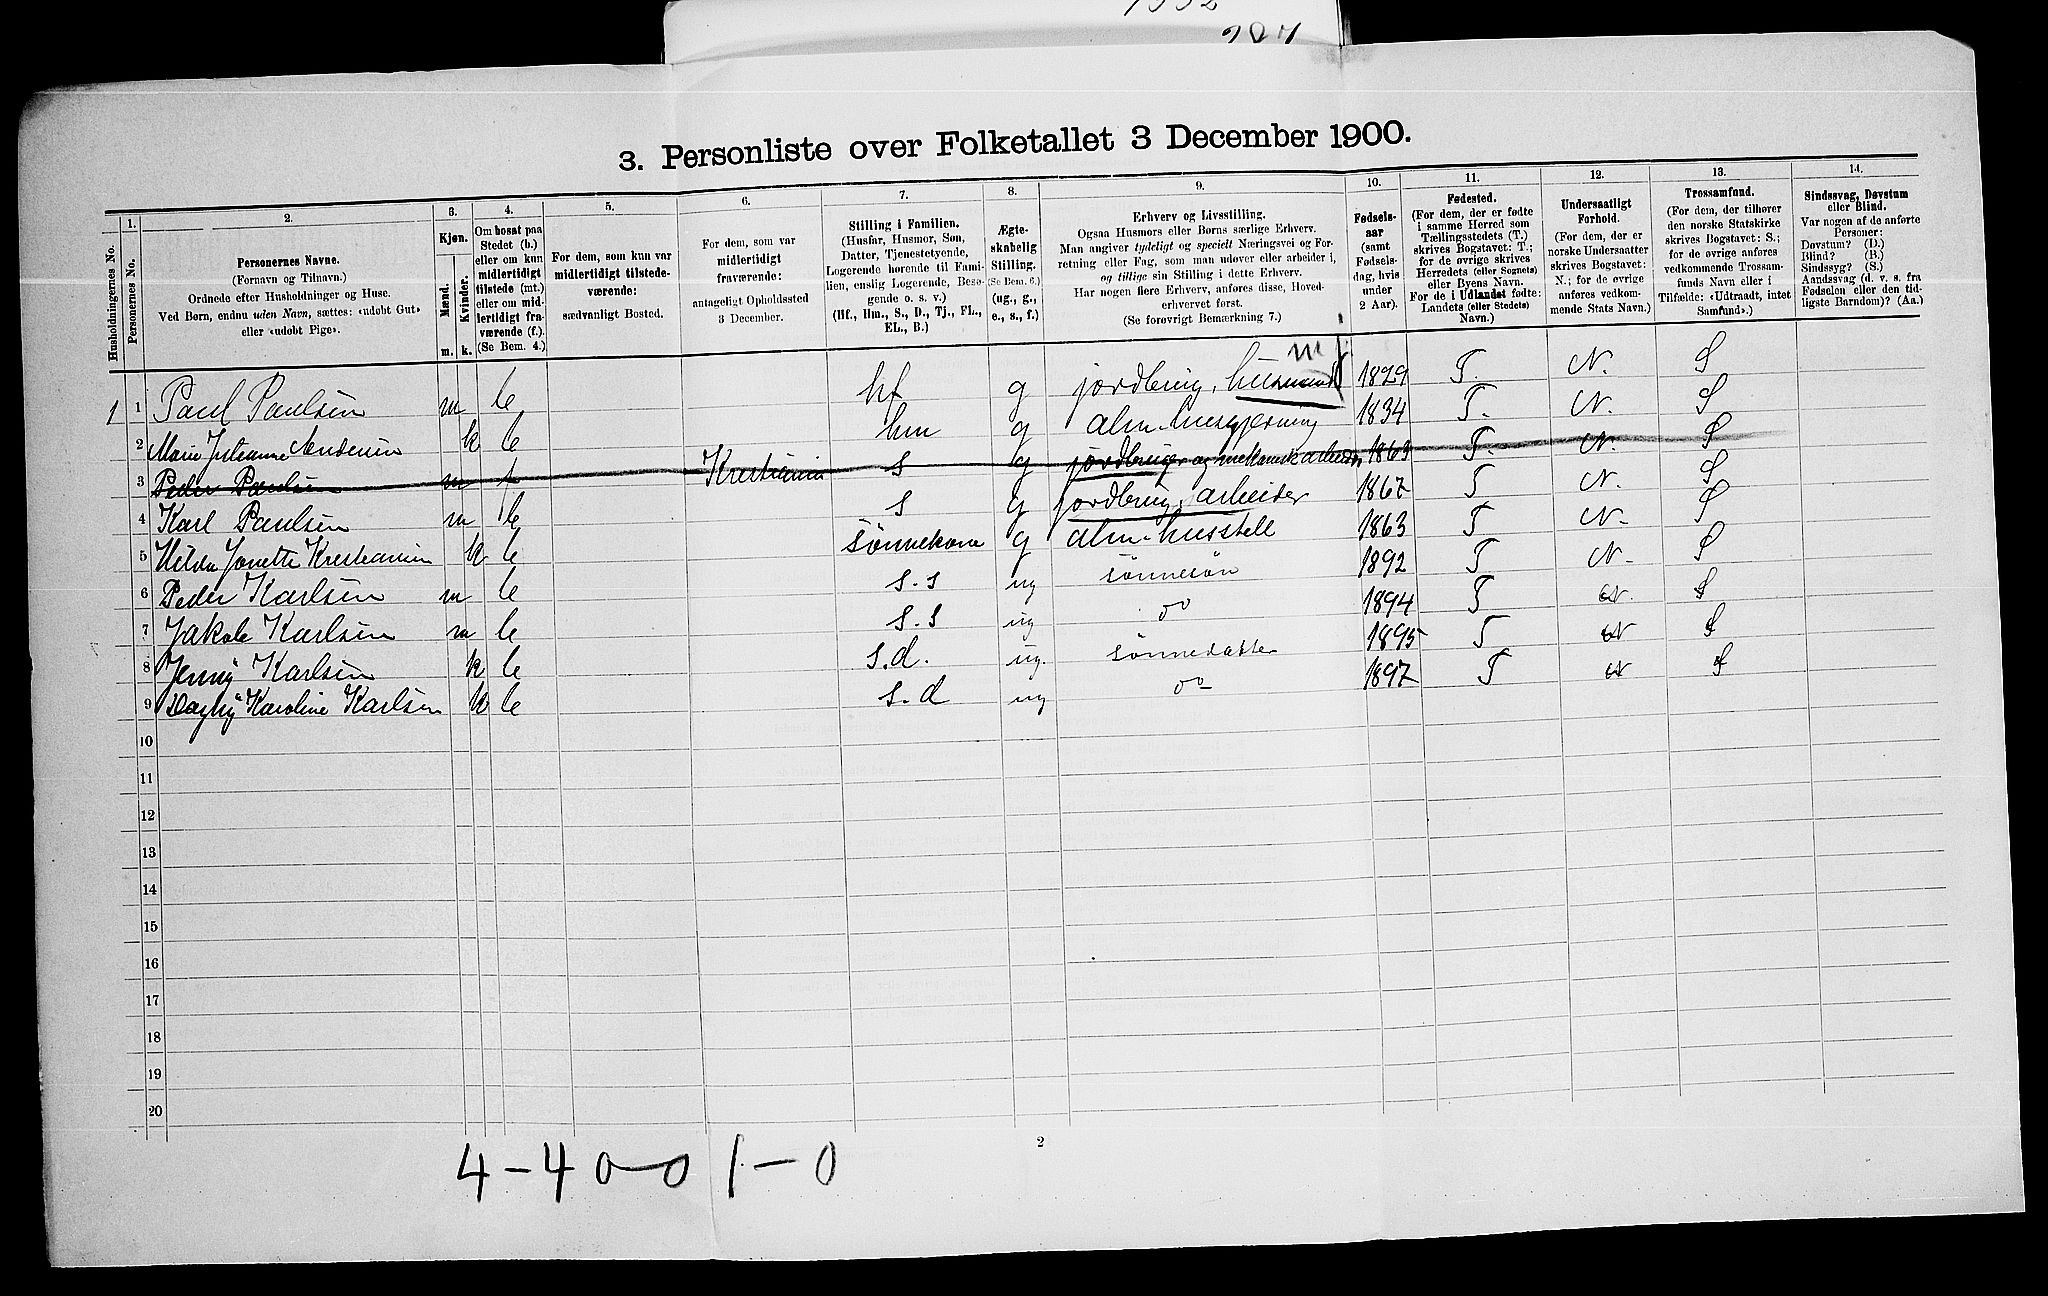 3. Personliste over Folketallet 3 December 1900.
Husholdningernes No.
1.
Personernes No.
2.
Personernes Navne.
(Fornavn og Tilnavn.)
Ordnede efter Husholdninger og Huse.
Ved Børn, endnu uden Navn, sættes: «udøbt Gut»
eller «udøbt Pige».
3.
Kjøn.
Mænd.
Kvinder.
m. k.
4.
Om bosat paa
Stedet (b.)
eller om kun
midlertidigt
tilstede (mt.)
eller om mid-
lertidigt fra-
værende (f.).
(Se Bem. 4.)
5.
For dem, som kun var
midlertidigt tilstede-
værende:
sædvanligt Bosted.
6.
For dem, som var
midlertidigt
fraværende:
antageligt Opholdssted
3 December.
7.
Stilling i Familien.
(Husfar, Husmor, Søn,
Datter, Tjenestetyende,
Logerende hørende til Fami-
lien, enslig Logerende, Besø-
gende o. s. v.)
(Hf., Hm., S., D., Tj., FL.,
EL., B.)
8.
Ægte-
skabelig
Stilling.
(Se Bem. 6.)
(ug., g.,
e., s., f.)
9.
Erhverv og Livsstilling.
Ogsaa Husmors eller Børns særlige Erhverv.
Man angiver tydeligt og specielt Næringsvei og For-
retning eller Fag, som man udøver eller arbeider i,
og tillige sin Stilling i dette Erhverv.
Har nogen flere Erhverv, anføres disse, Hoved-
erhvervet først.
(Se forøvrigt Bemærkning 7.)
10.
Fødsels-
aar
(samt
Fødsels-
dag, hvis
under
2 Aar).
11.
Fødested.
(For dem, der er fødte
i samme Herred som
Tællingsstedets (T.)
skrives Bogstavet: T.;
for de øvrige skrives
Herredets (eller Sognets)
eller Byens Navn.
For de i Udlandet fødte:
Landets (eller Stedets)
Navn.)
12.
Undersaatligt
Forhold.
(For dem, der er
norske Undersaatter
skrives Bogstavet:
N.; for de øvrige
anføres vedkom-
mende Stats Navn.)
13.
Trossamfund.
(For dem, der tilhører
den norske Statskirke
skrives Bogstavet: S.;
for de øvrige anføres
vedkommende Trossam-
funds Navn eller i
Tilfælde: «Udtraadt, intet
Samfund».)
14.
Sindssvag, Døvstum
eller Blind.
Var nogen af de anførte
Personer:
Døvstum? (D.)
Blind? (B.)
Sindssyg? (S.)
Aandssvag (d. v. s. fra
Fødselen eller den tid-
ligste Barndom)? (Aa.)
1 1 Paul Paulsen m b hf g jordbrug, husmand 1829 T. N. S
2 Marie Julianne Andersen k b hm g alm. husgjerning 1834 T. N. S
3 Peder Paulsen m f Kristiania s g jordbruger og mekanisk arbeider 1863 T. N. S
4 Karl Paulsen m b s g jordbrug, arbeider 1867 T N. S
5 Hilda Jonette Kristiansen k b sønnekone g alm. husstell 1863 T N. S
6 Peder Karlsen m b s.s ug sønnesøn 1892 T N. S
7 Jakob Karlsen m b s.s ug do 1894 T N. S
8 Jenny Karlsen k b s.d. ug. sønnedatter 1895 T N S
9 Dagny Karoline Karlsen k b s.d ug do 1897 T N S
10
11
12
13
14
15
16
17
18
19
20
2
4-4 0-0 1-0